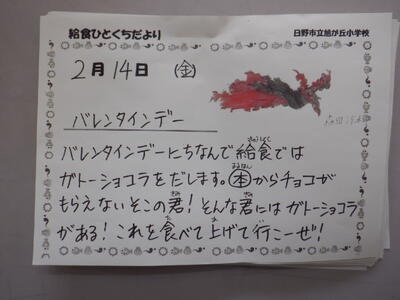 給食ひとくちだより 日野市立旭が丘小学校
2月14日 (金)
バレンタインデー
バレンタインデーにちなんで給食では
ガトーショコラをだします。本からチョコが
もらえないそこの君!そんな君にはガトーショコラ
がある!これを食べて上げて行こーぜ!